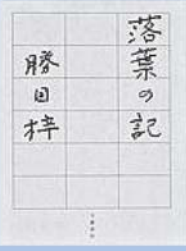 落葉の記
勝目梓